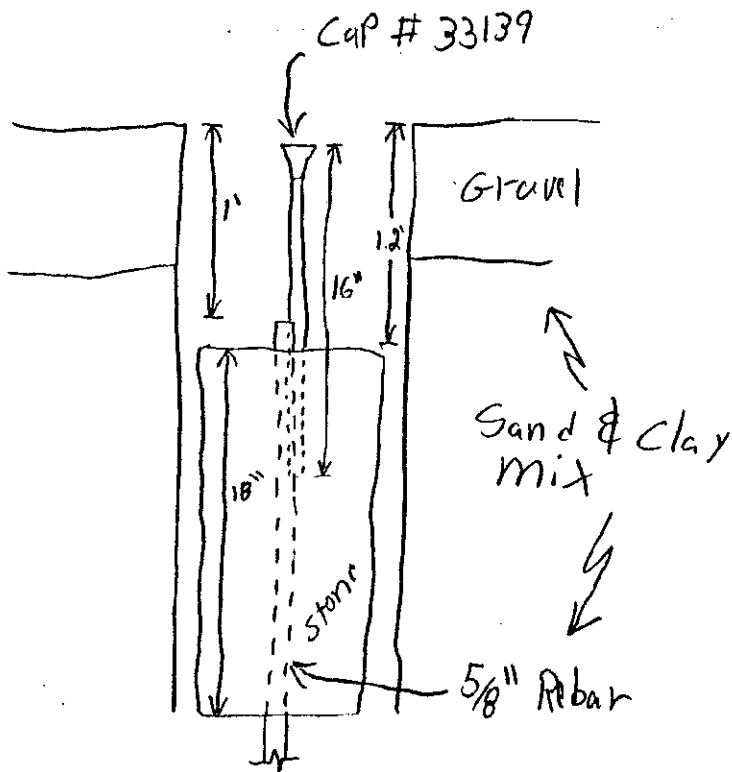 Cap # 33139
1'
1.2'
Gravel
16"
Sand & Clay
Mix
18"
Stone
5/8" Rebar